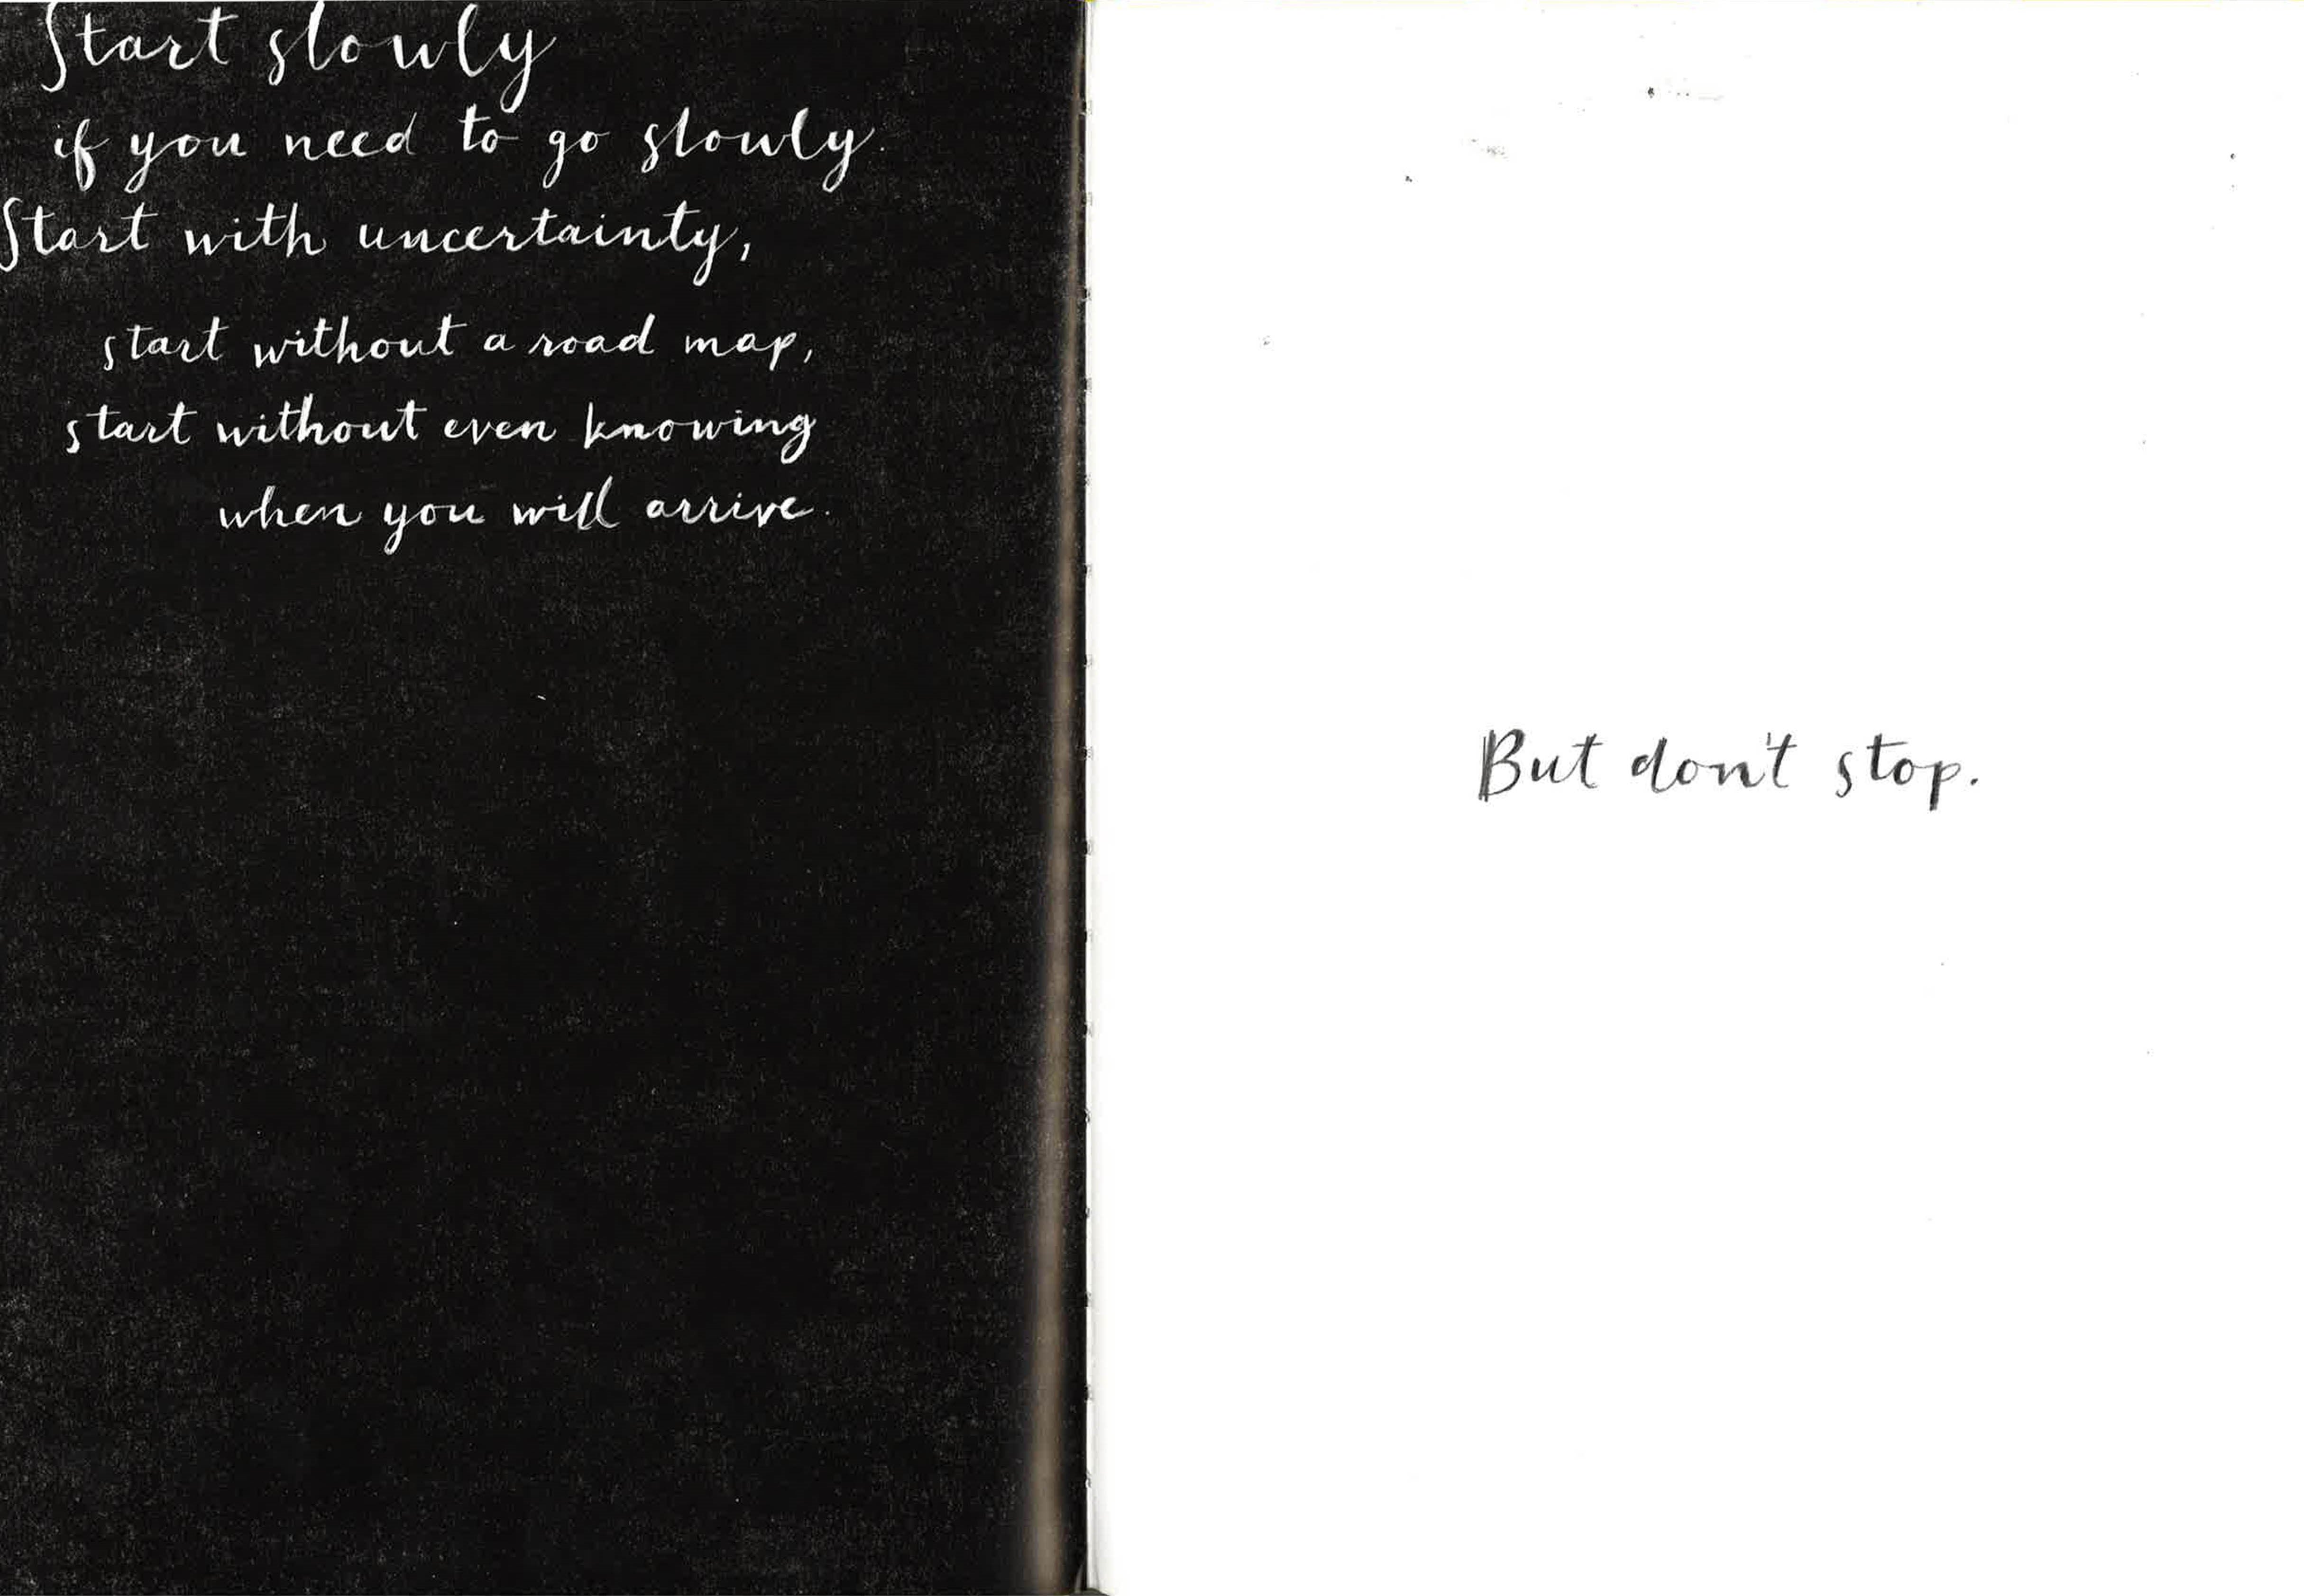 Start slowly
if you need to go slowly.
Start with uncertainty,
start without a road map,
start without even knowing
when you will arrive.
But don't stop.